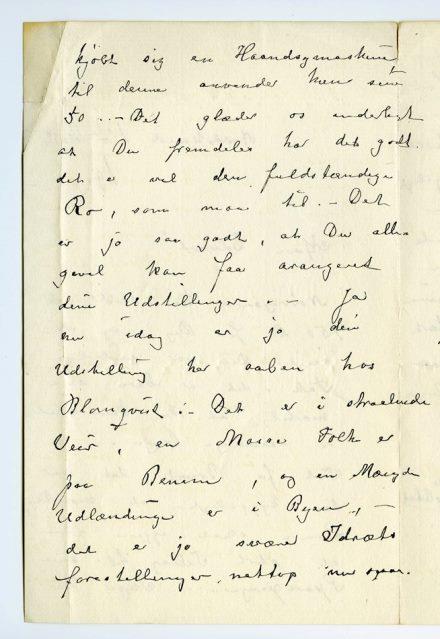 kjøbt sig en Haandsymaskine
til denne anvender hun sine
50.– Det glæder os inderligt
at Du fremdeles har det godt.
det er vel den fuldstændige
Ro, som maa til. – Det
er jo saa godt, at Du alli-
gevel kan faa arangeret
dine Udstillinger – – Ja
nu idag er jo din
Udstilling har aaben hos
Blomqvist i – Det er i straalende
Veir, en Masse Folk er
paa Benene, og en Mængde
Udlændinge er i Byen, –
det er jo svære Idræts
forestillinger, nettop nu